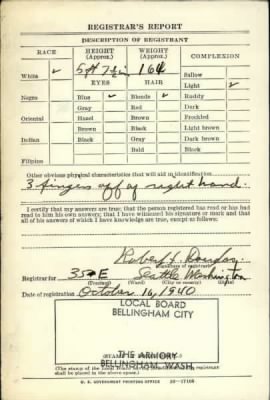 REGISTRAR'S REPORT
DESCRIPTION OF REGISTRANT
RACE HEIGHT (Approx.) WEIGHT (Approx.) COMPLEXION
White ✓ 5 ft 7½ in 164 Sallow
EYES HAIR Light ✓
Negro Blue ✓ Blonde ✓ Ruddy
Gray Red Dark
Oriental Hazel Brown Freckled
Brown Black Light brown
Indian Black Gray Dark brown
Bald Black
Filipino
Other obvious physical characteristics that will aid in identification
3 fingers off of right hand.
I certify that my answers are true; that the person registered has read or has had
read to him his own answers; that I have witnessed his signature or mark and that
all of his answers of which I have knowledge are true, except as follows:
Robert Douglas
(Signature of registrar)
Registrar for 35 E Seattle Washington
(Precinct) (Ward) (City or county) (State)
Date of registration October 16, 1940
LOCAL BOARD
BELLINGHAM CITY
THE ARMORY
BELLINGHAM, WASH.
(The stamp of the Local Board registrant
shall be placed in the above space.)
U. S. GOVERNMENT PRINTING OFFICE